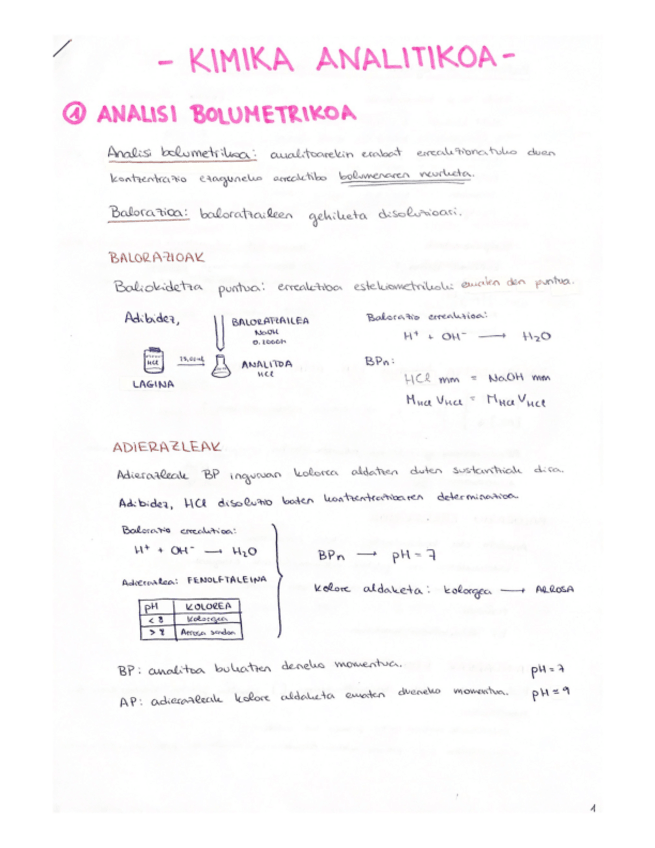 - KIMIKA ANALITIKOA -
① ANALISI BOLUMETRIKOA
Analisi bolumetrikoa: analitoarekin erabat erreakzionatuko duen
kontzentrazio ezaguneko erreaktibo bolumenaren neurketa.
Balorazioa: baloratzaileen gehiketa disoluzioari.
BALORAZIOAK
Baliokidetza puntua: erreakzioa estekiometrikoki ematen den puntua.
Adibidez,
BALORATZAILEA
NaOH
0.1000M
HCl
25,00mL
ANALITOA
HCl
LAGINA
Balorazio erreakzioa:
H⁺ + OH⁻ → H₂O
BPn:
HCl mm = NaOH mm
M HCl V HCl = M HCl V HCl
ADIERAZLEAK
Adierazleak BP inguruan kolorea aldatzen duten substantziak dira.
Adibidez, HCl disoluzio baten kontzentrazioaren determinazioa
Balorazio erreakzioa:
H⁺ + OH⁻ → H₂O
Adierazlea: FENOLFTALEINA
pH KOLOREA
< 8 Kolorgea
> 8 Arrosa sendoa
BPn → pH = 7
Kolore aldaketa: kolorgea → ARROSA
BP: analitoa bukatzen deneko momentua. pH = 7
AP: adierazleak kolore aldaketa ematen dueneko momentua. pH = 9
1